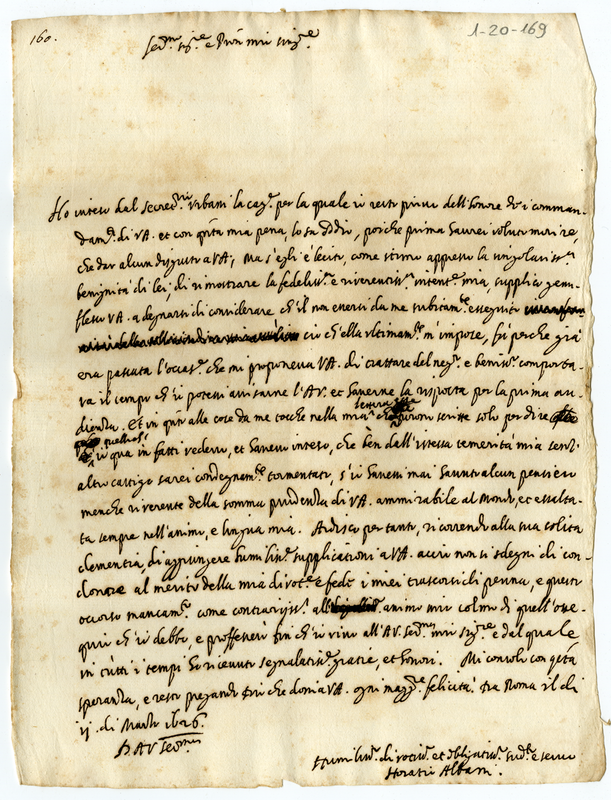 160.
1-20-169
Ser.mo Sig.re e Pron mio Sing.re
Ho inteso dal Secret.rio Urbani la cag.e per la quale io resto privo dell'honore de i comman-
dam.ti di VA. et con q.ta mia pena, lo sa Iddio, poiche prima haurei voluto morire,
che dar alcun disgusto a VA; Ma s'egli è lecito, come stimo appresso la singolariss.a
benignità di lei, di mostrare la fedeliss.a e riverentiss.a intent.e mia, supplico genu-
flesso VA. a degnarsi di considerare ch'il non essersi da me subitam.te esseguito
ciò ch'ella ultimam.te m'impose, fù perche già
era passata l'occas.e che mi proponeva VA. di trattare del neg.o e beniss.o comporta-
va il tempo ch'io potessi avisarne l'AV. et haverne la risposta per la prima au-
dienza. Et in q.to alle cose da me tocche nella mia lettera furono scritte solo per dire
quello ch' io qua in fatti vedevo, et havevo inteso, che ben dall'istessa temerità mia senz'
altro castigo sarei condegnam.te tormentato, s'io havessi mai havuto alcun pensiero
menche riverente della somma prudenza di VA. ammirabile al Mondo, et essalta-
ta sempre nell'animo, e lingua mia. Ardisco per tanto, ricorrendo alla sua solita
clementia, di aggiungere humiliss.e supplicationi a VA. acciò non si sdegni di con-
donare al merito della mia divot.e e fede i miei trascorsi di penna, e questo
occorso mancam.to come contrarijss.o all' animo mio colmo di quell'osse-
quio ch'io debbo, e professerò fin ch'io vivo all'AV. Ser.ma mio Sig.re e dal quale
in tutti i tempi ho ricevuto segnalatiss.e gratie, et honori. Mi consolo con q.ta
speranza, e resto pregando Dio che doni a VA. ogni magg.re felicità. Da Roma il dì
ij. di Marzo 1626.
D. AV Ser.ma
Humiliss.o divotiss.o et obligatiss.o sud.to e servo
Horatio Albani.